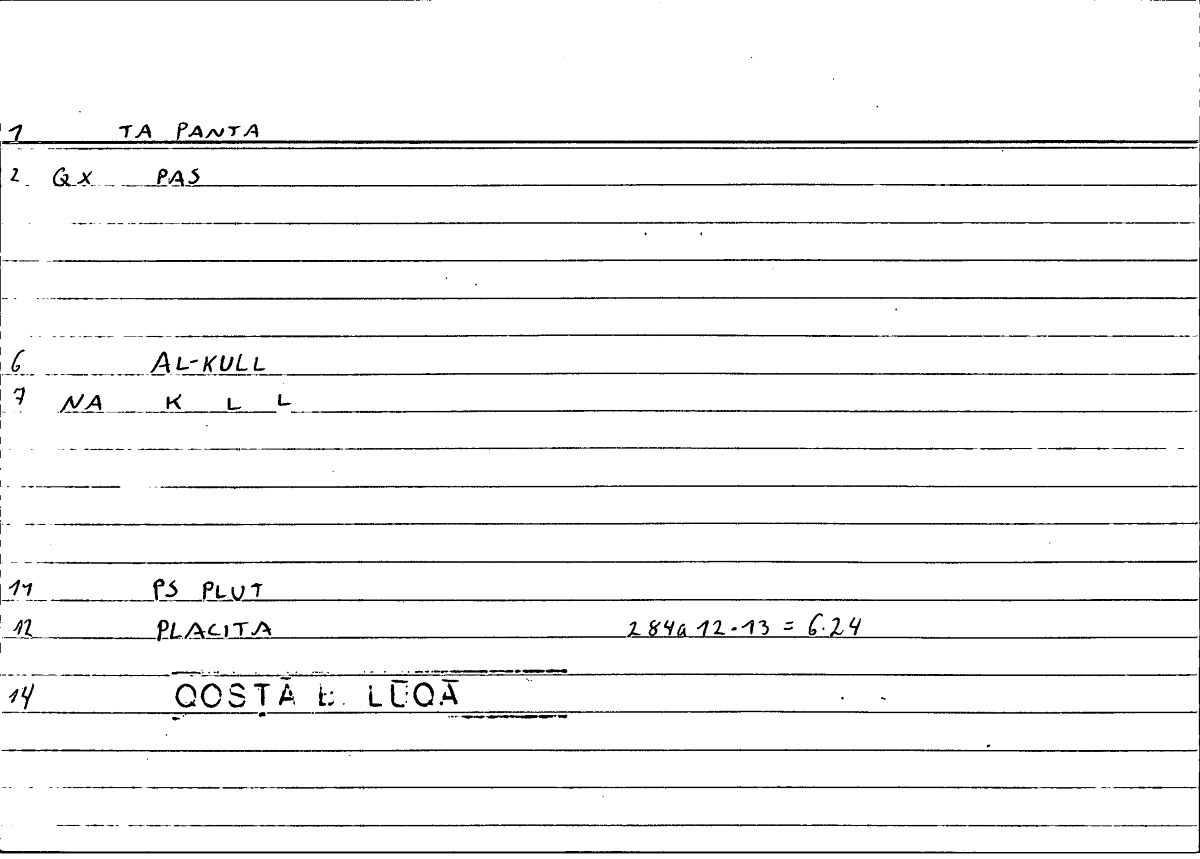 1 TA PANTA
2 QX PAS
6 AL-KULL
7 NA K L L
11 PS PLUT
12 PLACITA 284a 12-13 = 6.24
14 QOSṬĀ B. LŪQĀ